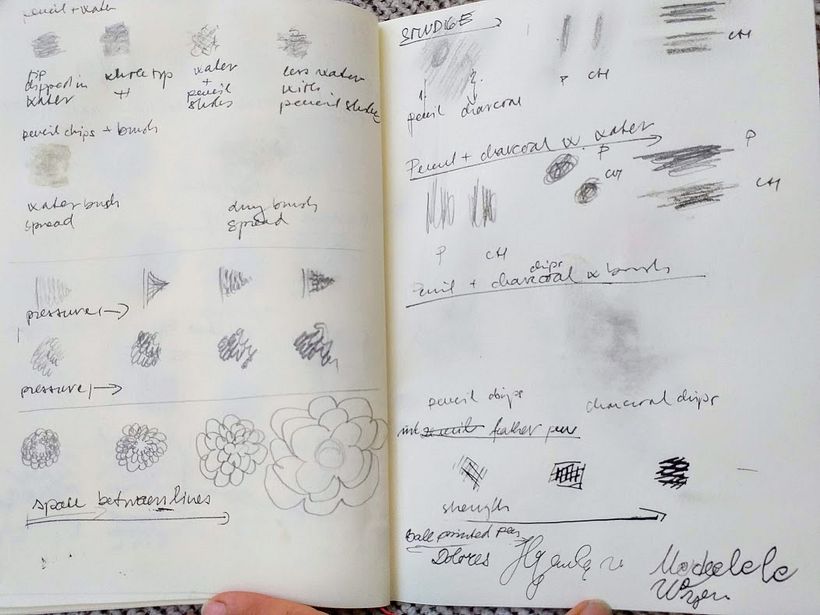 pencil + water
tip
dipped in
water
whole tip
water
+
pencil
strokes
less water
with
pencil strokes
pencil chips + brush
water brush
spread
dry brush
spread
pressure →
pressure →
space between lines
P
CH
CH
pencil
charcoal
Pencil + charcoal w water
P
CH
P
CH
P
CH
chips
Pencil + charcoal w brush
pencil chips
charcoal chips
ink feather pen
strength
Ball pointed pen
Dolores